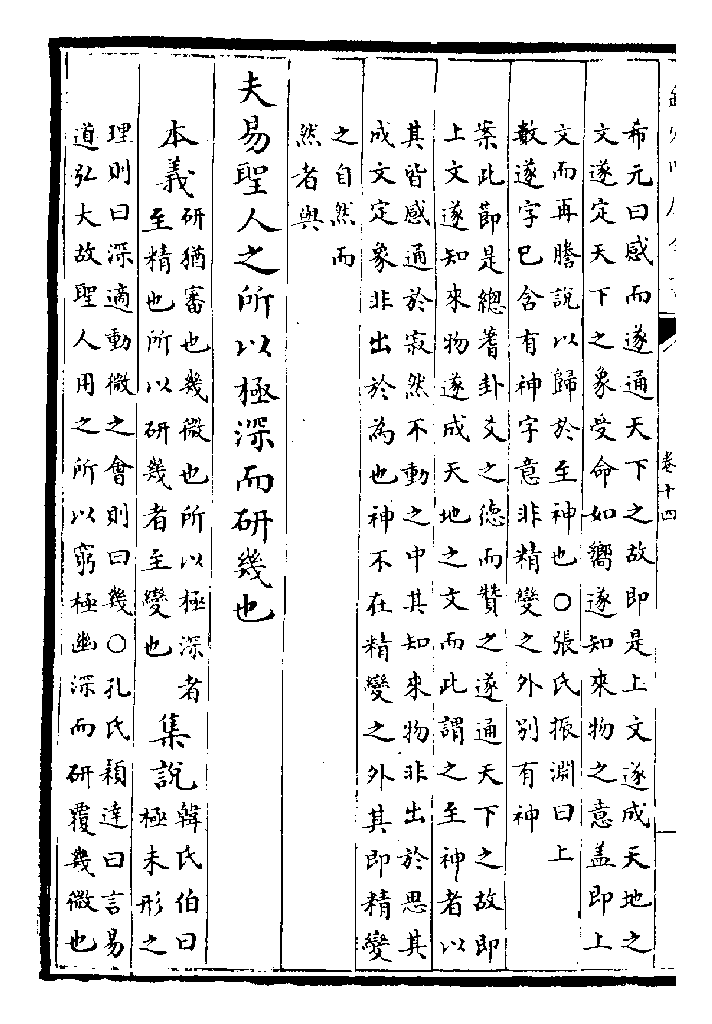 卷十四
希元曰感而遂通天下之故即是上文遂成天地之
文遂定天下之象受命如嚮遂知來物之意盖即上
文而再贍說以歸於至神也○張氏振淵曰上
數遂字已含有神字意非精變之外别有神
案此節是總蓍卦爻之德而贊之遂通天下之故即
上文遂知來物遂成天地之文而此謂之至神者以
其皆感通於寂然不動之中其知來物非出於思其
成文定象非出於為也神不在精變之外其即精變
之自然而
然者與
夫易聖人之所以極深而研幾也
本義
研猶審也幾微也所以極深者
至精也所以研幾者至變也
集說
韓氏伯曰
極未形之
理則曰深適動微之會則曰幾○孔氏穎達曰言易
道弘大故聖人用之所以窮極幽深而研覆幾微也